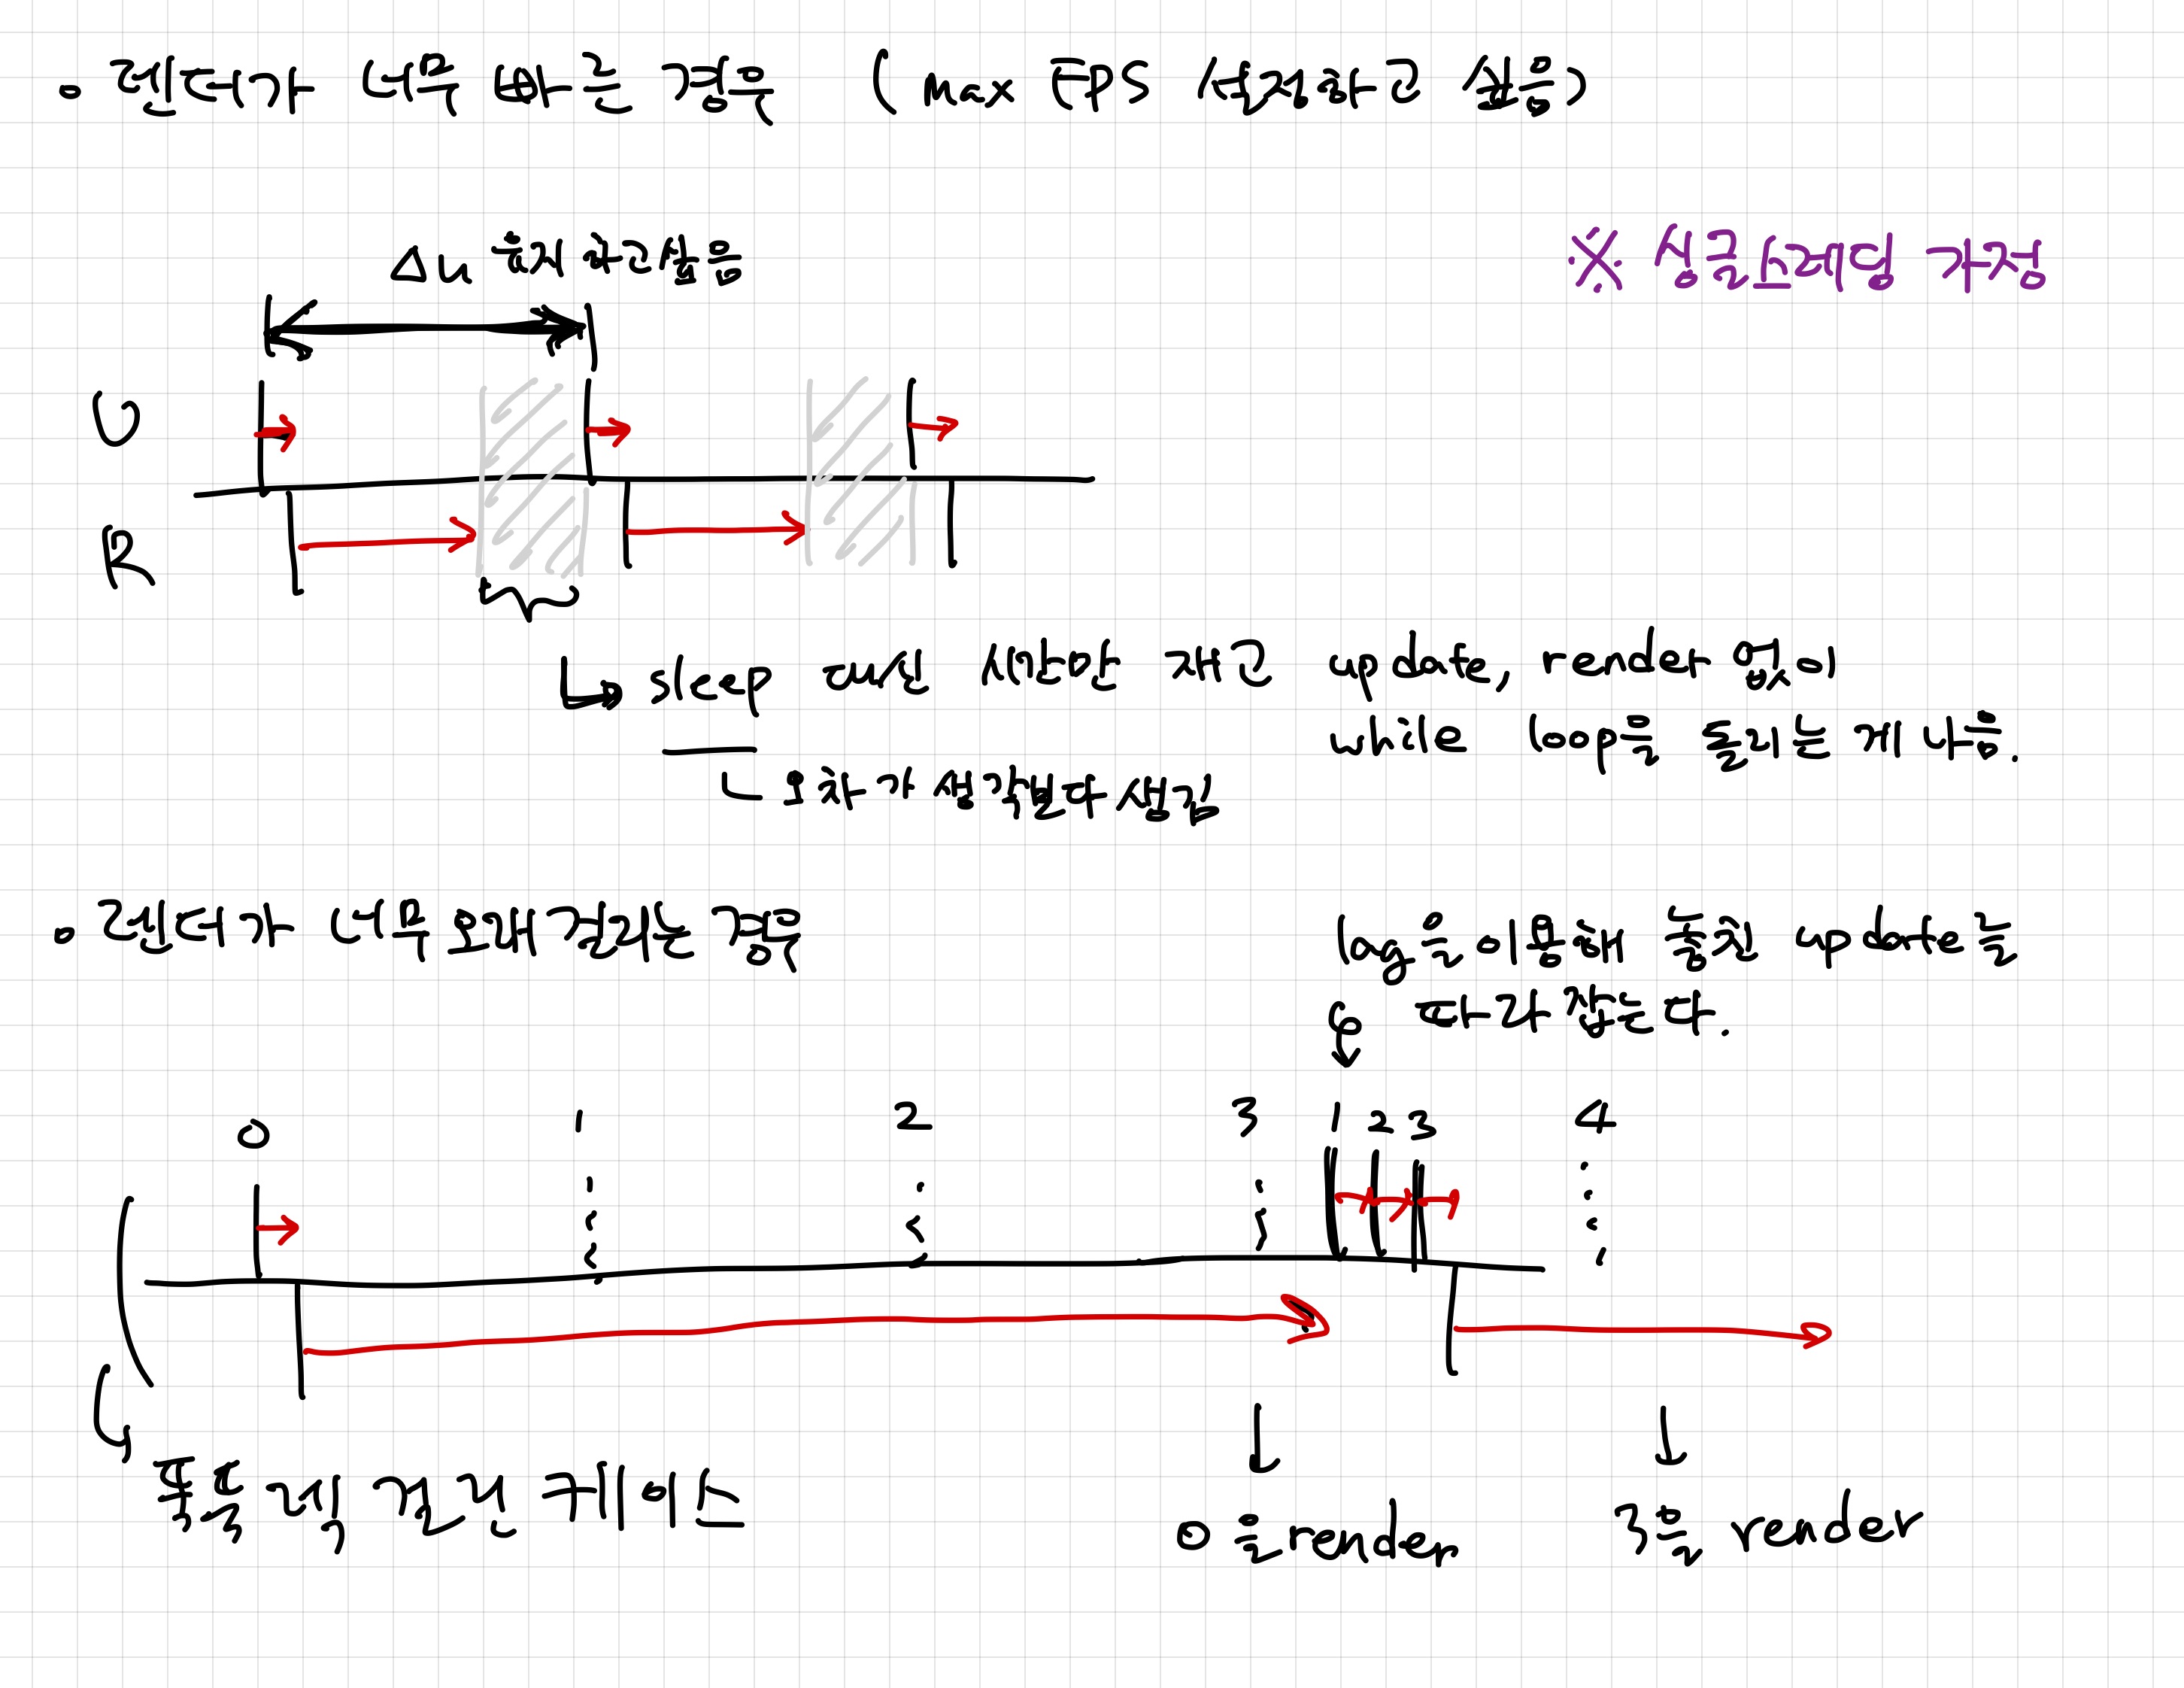 • 렌더가 너무 빠른 경우 ( Max FPS 설정하고 싶음)
Δu 유지하고싶음
※ 싱글스레딩 가정
U
R
↳ sleep 대신 시간만 재고 update, render 없이
while loop을 돌리는 게 나음.
ㄴ 오차가 생각보다 생김
• 렌더가 너무 오래 걸리는 경우
lag을 이용해 놓친 update를
따라잡는다.
0 1 2 3 1 2 3 4
푹푹 렉 걸린 케이스
0을 render
3을 render